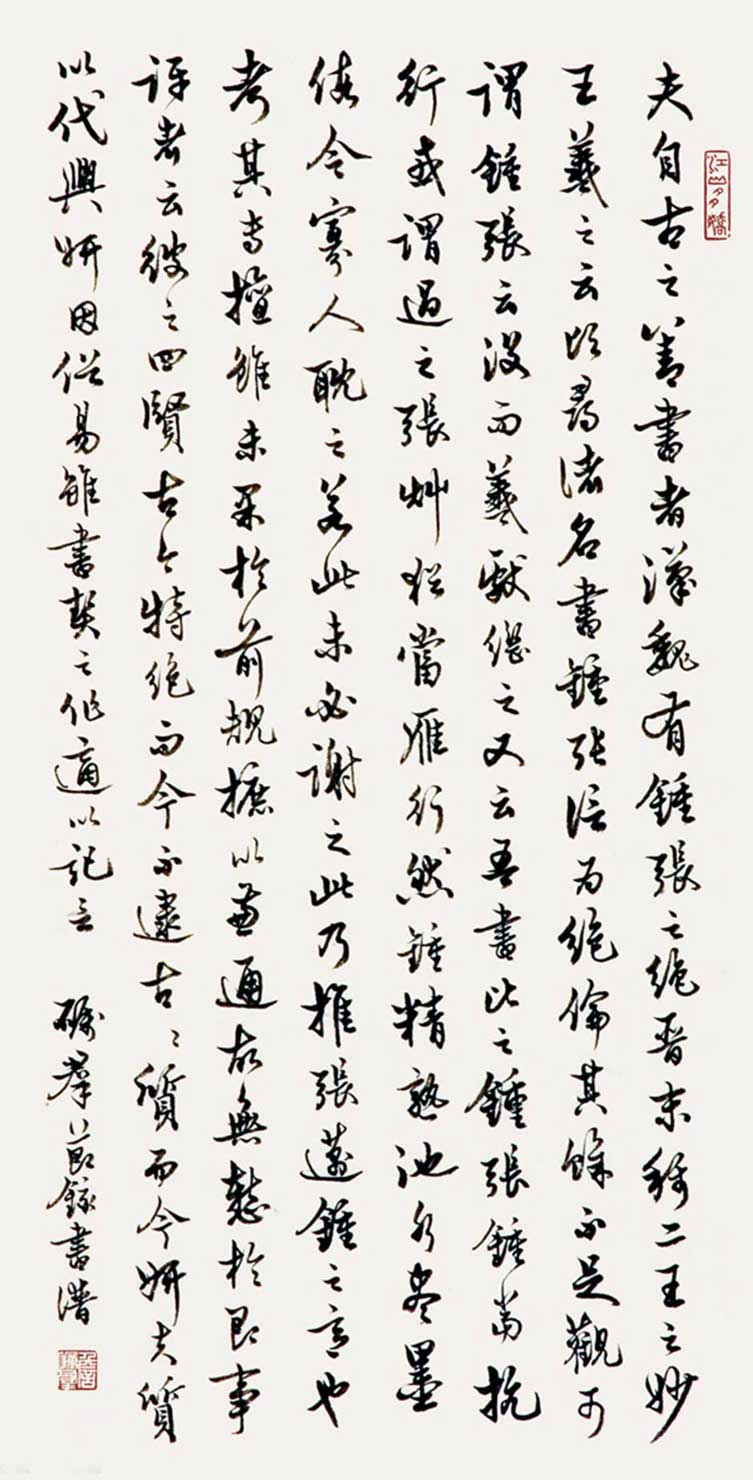 江山多嬌
夫自古之善書者漢魏有鍾張之絕晉末稱二王之妙
王羲之云頃尋諸名書鍾張信為絕倫其餘不足觀可
謂鍾張云沒而羲獻繼之又云吾書比之鍾張鍾當抗
行或謂過之張艸猶當雁行然鍾精熟池水盡墨
假令寡人耽之若此未必謝之此乃推張邁鍾之意也
考其專擅雖未果於前規摭以兼通故無慙於即事
評者云彼之四賢古今特絕而今不逮古〻質而今妍夫質
以代興妍因俗易雖書契之作適以記言 群節錄書譜